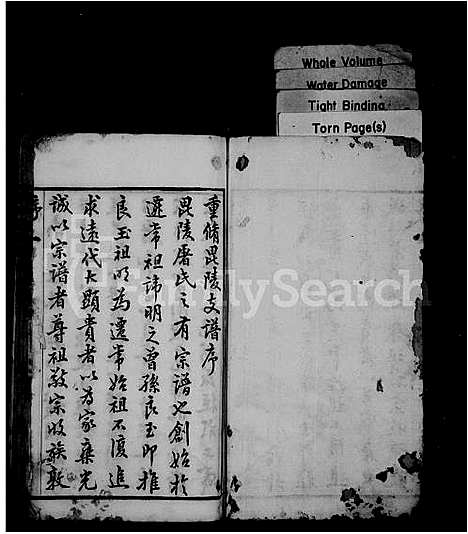 Whole Volume
Water Damage
Tight Binding
Torn Page(s)
FamilySearch
重脩毘陵支譜序
毘陵屠氏之有宗譜也創始於
遷常祖諱明之曾孫良玉卽推
良玉祖明為遷常始祖不復進
求遠代大顯貴者以為家乘光
誠以宗譜者尊祖敬宗收族敦
序一